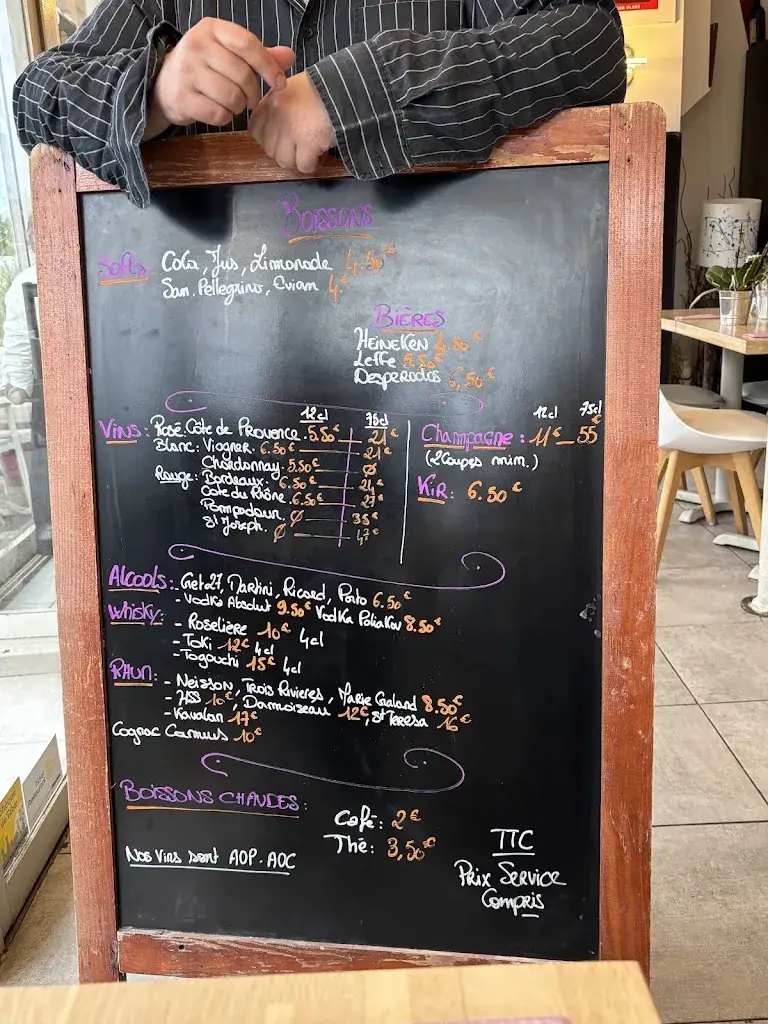 BOISSONS
Softs Cola, Jus, Limonade 4.50€
San. Pellegrino, Evian 4€
BIÈRES
HEINEKEN 4.50€
Leffe 5.50€
Desperados 6,50€
12cl 75cl
Vins: Rosé. Côte de Provence. 5.50€ 21€
Blanc: Viogner. 6.50€ 21€
Chardonnay. 5.50€ Ø
Rouge: Bordeaux. 6.50€ 21€
Cote du Rhône. 6.50€ 27€
Pompadour. Ø 35€
St Joseph. Ø 47€
12cl 75cl
Champagne: 11€ 55€
(2 Coupes mim.)
KiR: 6.50€
Alcools: - Get 27, Martini, Ricard, Porto 6.50€
- Vodka Absolut 9.50€ Vodka Poliakov 8.50€
Whisky: - Roselière 10€ 4cl
- Toki 12€ 4cl
- Togouchi 15€ 4cl
RHUM: - Neisson, Trois Rivieres, Marie Galand 8.50€
- HSS 10€, Damoiseau 12€, St Teresa 16€
- Kavalan 17€
Cognac Camus 10€
BOISSONS CHANDES:
Café: 2€
Thé: 3,50€
Nos Vins sont AOP. AOC
TTC
Prix Service
Compris